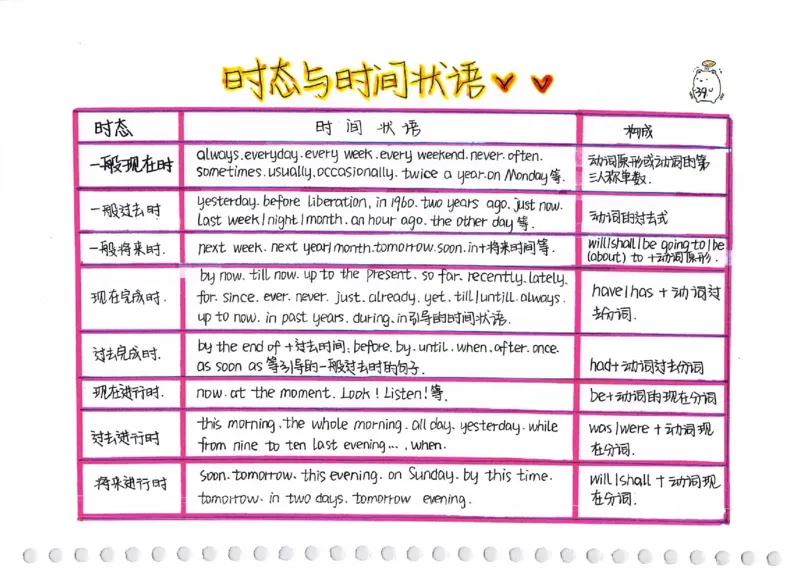 时态与时间状语
39
时态
时间状语
构成
一般现在时
always.everyday.every week.every weekend.never.often.
sometimes.usually.occasionally. twice a year.on Monday等.
动词原形或动词的第
三人称单数.
一般过去时
yesterday. before liberation, in 1960. two years ago. just now.
Last week/night/month. an hour ago. the other day等.
动词的过去式
一般将来时.
next week. next year/month.tomorrow.soon.in+将来时间等.
will/shall/be going to/be
(about) to +动词原形.
现在完成时.
by now. till now. up to the present. so far. recently.lately.
for. since. ever. never. just. already. yet. till/untill. always.
up to now. in past years. during. in引导的时间状语.
have/has + 动词过
去分词.
过去完成时.
by the end of +过去时间. before. by. until. when. after. once.
as soon as 等引导的一般过去时的句子.
had+动词过去分词
现在进行时.
now. at the moment. Look! Listen!等.
be+动词的现在分词
过去进行时
this morning. the whole morning. all day. yesterday. while
from nine to ten last evening..., when.
was/were + 动词现
在分词.
将来进行时
soon. tomorrow. this evening. on Sunday. by this time.
tomorrow. in two days. tomorrow evening.
will/shall + 动词现
在分词.